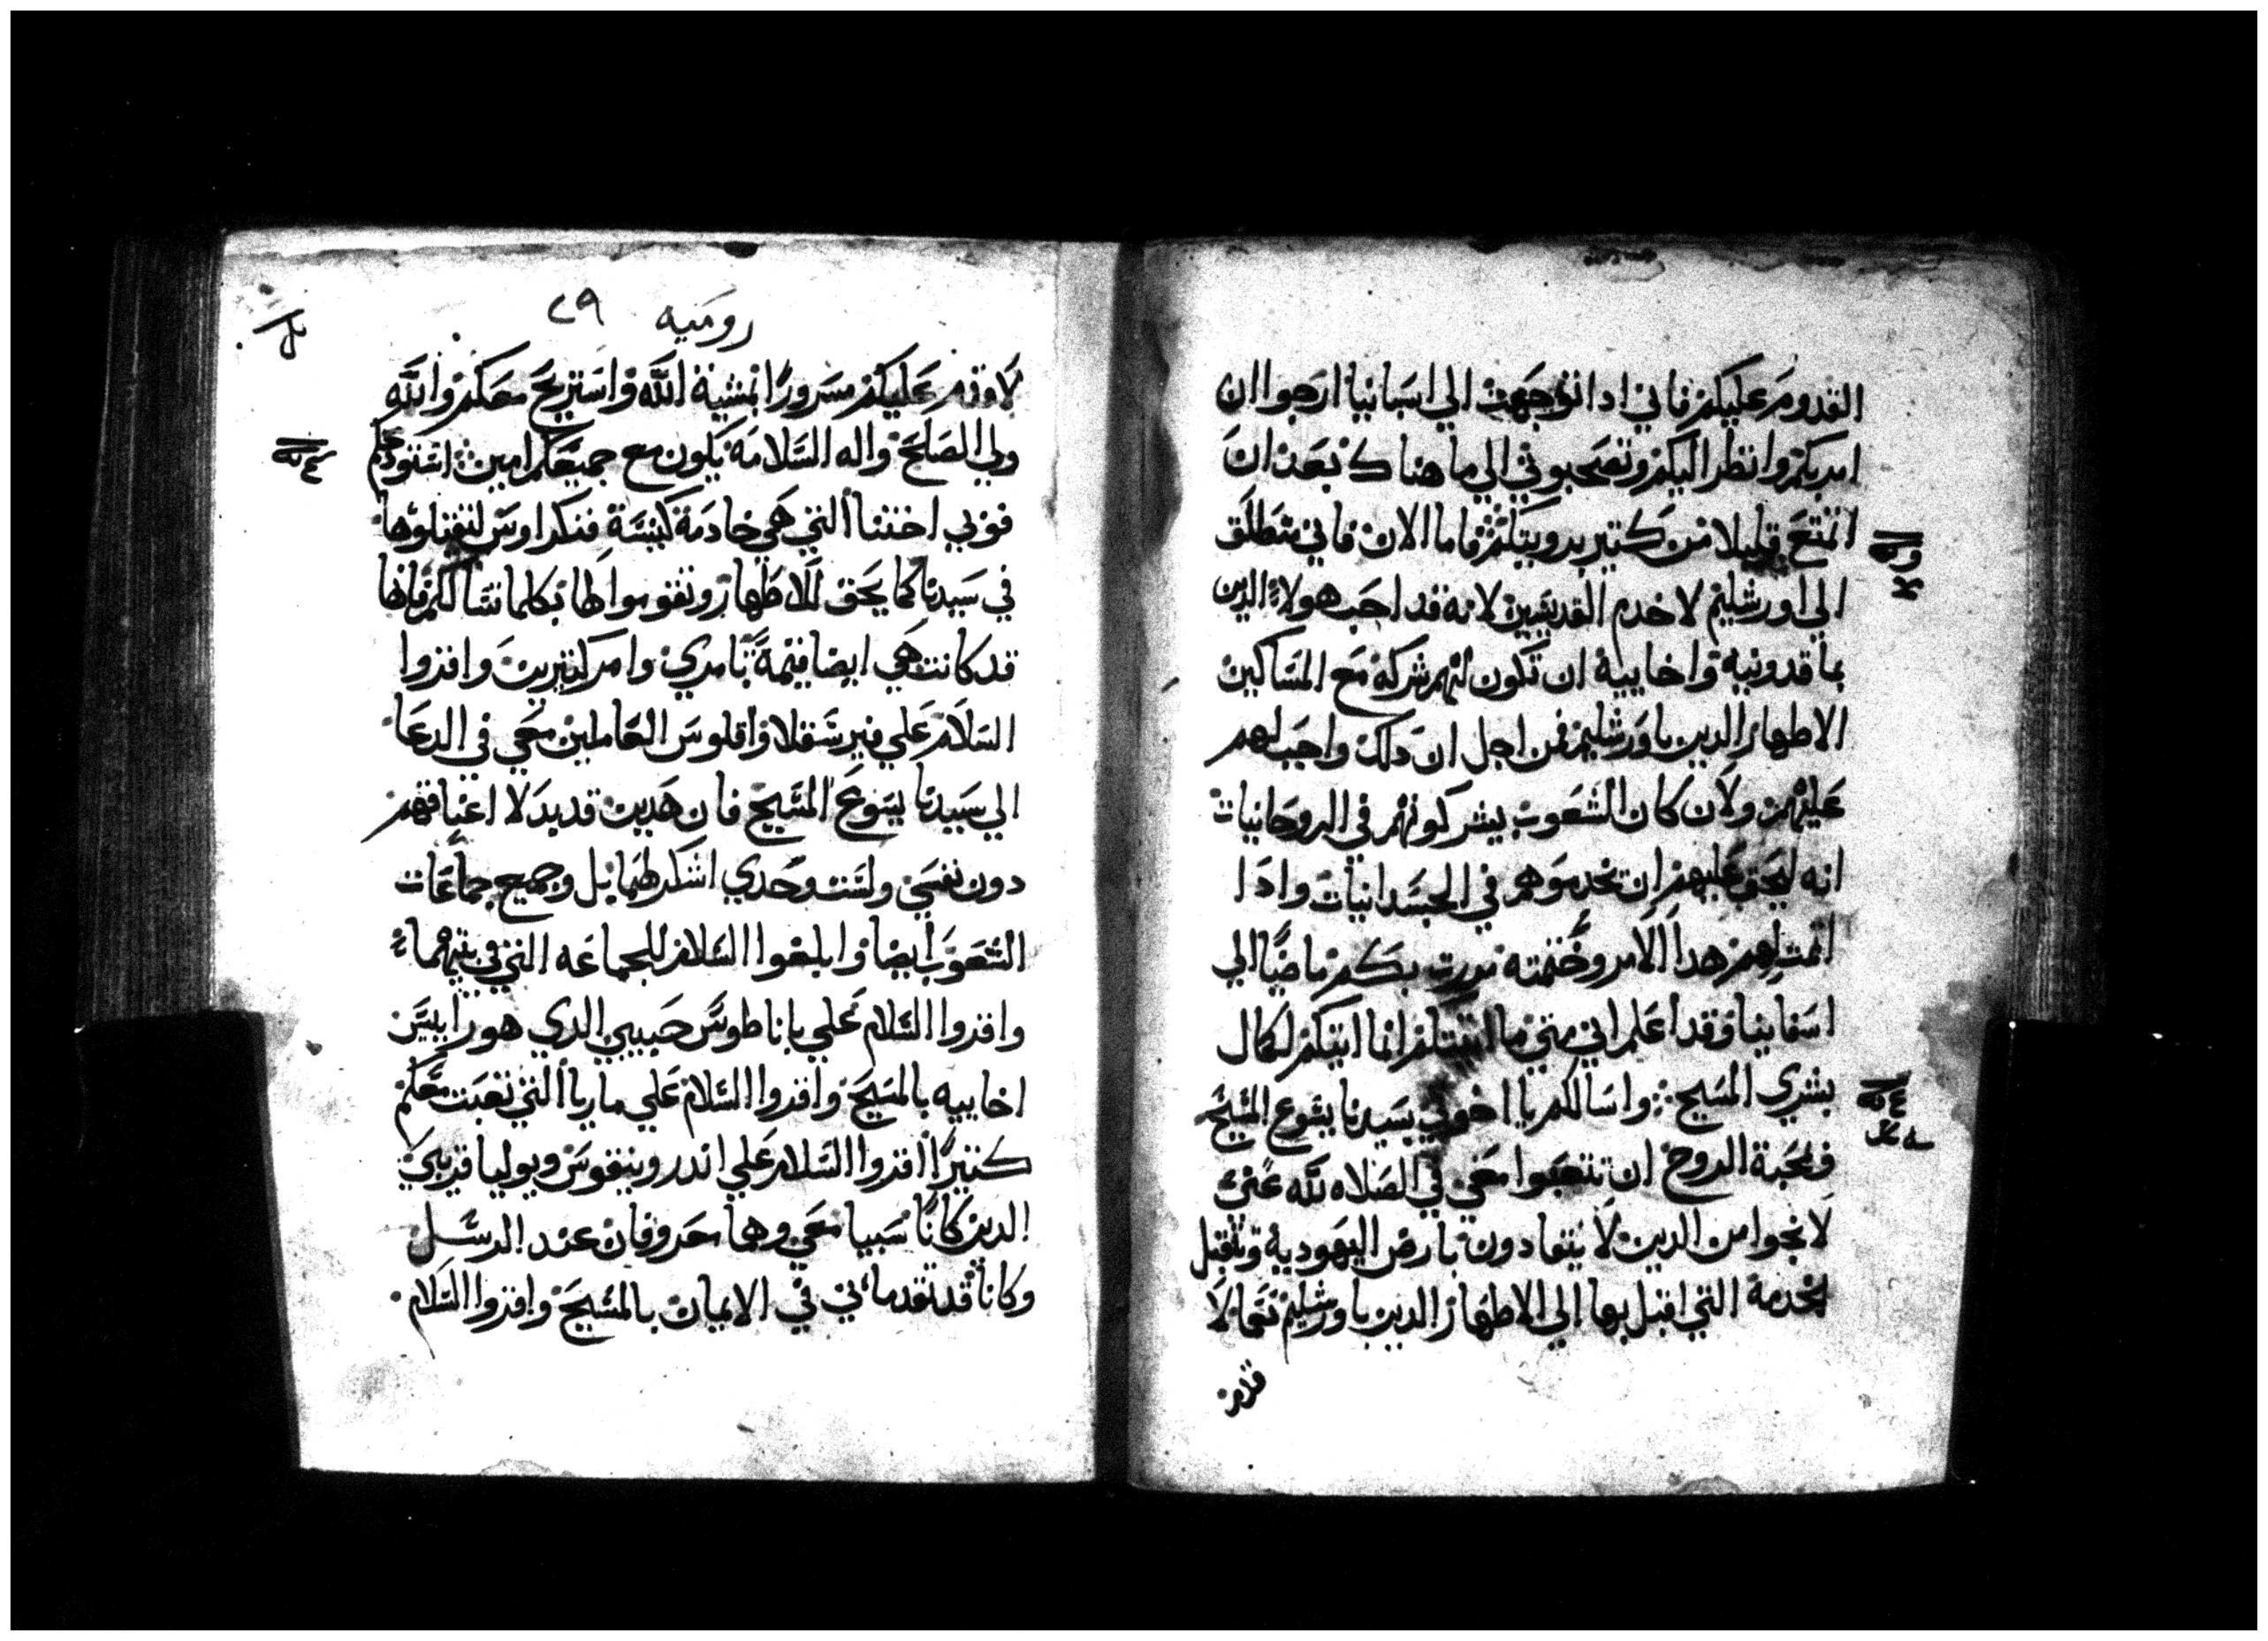 القدوم عليكم فاني ادا توجهت الي اسبانيا ارجوا ان
امر بكم وانظر اليكم وتصحبوني الي ما هناك بعد ان
اتمتع قليلا من كتير برويتكم فاما الان فاني منطلق
الي اورشليم لاخدم القديسين لانه قد احب هولاء الدين
بماقدونيه واخاييه ان تكون لهم شركة مع المساكين
الاطهار الدين باورشليم فمن اجل ان دلك واجب لهم
عليهم ولان كان الشعوب يشركونهم في الروحانيات
انه ليحق عليهم ان يخدموهم في الجسدانيات وادا
اتممت لهم هدا الامر وختمته مررت بكم ماضيا الي
اسفانيا وقد اعلم اني متي ما اتيتكم انما اتيكم لكمال
بشري المسيح واسالكم يا اخوتي بسيدنا يسوع المسيح
وبمحبة الروح ان تتعبوا معي في الصلاه لله عني
لانجوا من الدين لا ينقادون بارض اليهودية وتتقبل
الخدمة التي اقبل بها الي الاطهار الدين باورشليم تعالا
روميه ٢٩
لاقدم عليكم مسرورا بمشية الله واستريح معكم والله
ولي الصلح واله السلامة يكون مع جميعكم امين استودعكم
فوبي اختنا التي هي خادمة كنيسة قنكراوس لتقبلوها
في سيدنا كما يحق للاطهار وتقوموا لها بكلما تسالكم فانها
قد كانت هي ايضا قيمة بامري وامر كتيرين واقروا
السلام علي فيرسقلا واقلوس العاملين معي في الدعا
الي سيدنا يسوع المسيح فان هدين قد بدلا اعناقهم
دون نفسي ولست وحدي اشكر لهما بل وجميع جماعات
الشعوب ايضا وابلغوا السلام للجماعه التي في بيتهما
واقروا السلام علي باناطوس حبيبي الدي هو رايس
اخاييه بالمسيح واقروا السلام علي ماريا التي تعبت معكم
كتيرا اقروا السلام علي اندرونيقوس ويوليا قريبي
الدين كانا سبيا معي وهما معروفان عند الرسل
وكانا قد تقدماني في الايمان بالمسيح واقروا السلام